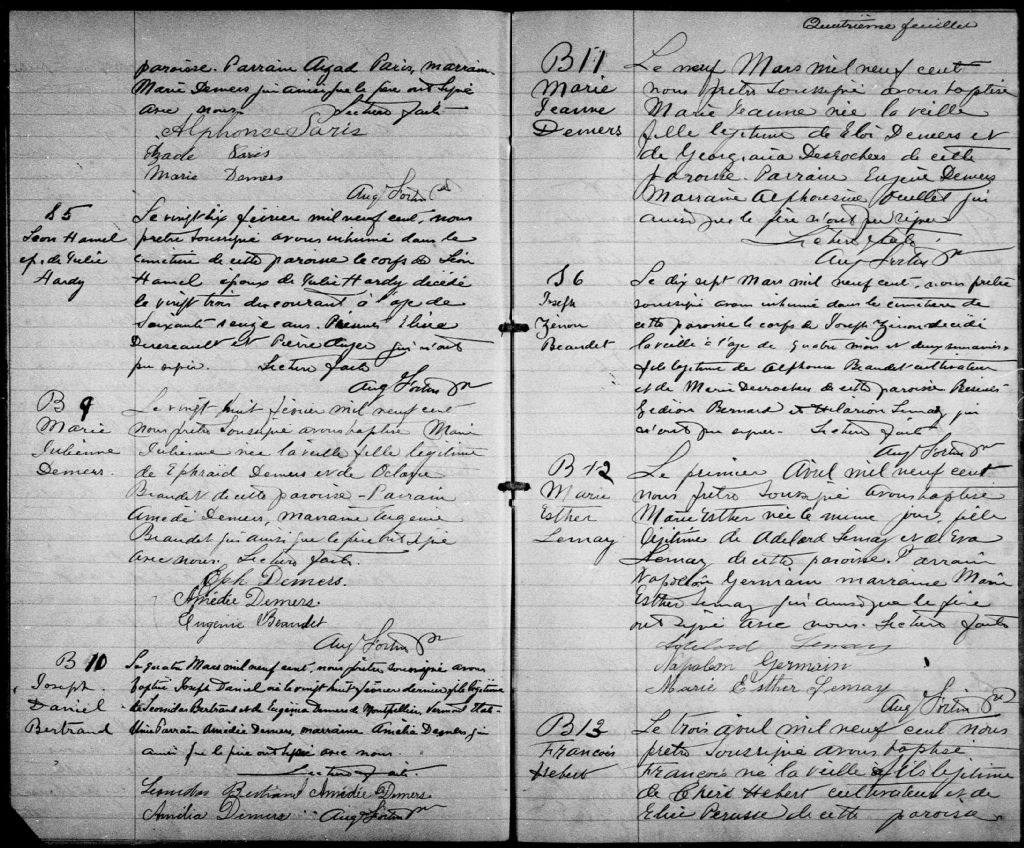 paroisse. Parrain Azad Paris, marraine
Marie Demers qui ainsi que le père ont signé
avec nous. Lecture faite
Alphonse Paris
Azade Paris
Marie Demers
Aug Fortin Ptr
S5
Léon Hamel
ép. de Julie
Hardy
Le vingt six février mil neuf cent, nous
pretre soussigné avons inhumé dans le
cimetière de cette paroisse le corps de Léon
Hamel époux de Julie Hardy décédé
le vingt trois du courant à l'age de
Soixante seize ans. Présences Elisée
et Pierre Auger qui n'ont
pu signer. Lecture faite
Aug Fortin Ptr
B 9
Marie
Julienne
Demers.
Le vingt huit février mil neuf cent
nous prêtre soussigné avons baptisé Marie
Julienne née la veille fille légitime
de Ephraid Demers et de Octavie
Beaudet de cette paroisse - Parrain
Amédé Demers, marraine Eugenie
Beaudet qui ainsi que le père ont signé
avec nous. Lecture faite.
Eph Demers.
Amédée Demers.
Eugenie Beaudet
Aug Fortin Ptr
B 10
Joseph
Daniel
Bertrand
Le quatre Mars mil neuf cent, nous prêtre soussigné avons
baptisé Joseph Daniel né le vingt huit février dernier fils légitime
de Leonidas Bertrand et de Eugénia Demers de Montpellier, Vermont Etats
Unis Parrain Amédée Demers, marraine Amélia Demers qui
ainsi que le père ont signé avec nous.
Lecture faite.
Leonidas Bertrand Amédée Demers.
Amélia Demers Aug Fortin Ptr
Quatrième feuillet
B11
Marie
Jeanne
Demers
Le neuf Mars mil neuf cent
nous prêtre soussigné avons baptisé
Marie Jeanne née la veille
fille légitime de Eloi Demers et
de Georgiana Desrochers de cette
paroisse. Parrain Eugène Demers
Marraine Alphonsine Ouellet qui
ainsi que le père n'ont pu signer
Lecture faite.
Aug Fortin Ptr
S6
Joseph
Zénon
Beaudet
Le dix sept Mars mil neuf cent, nous prêtre
soussigné avons inhumé dans le cimetière de
cette paroisse le corps de Joseph Zénon décédé
la veille à l'age de quatre mois et deux semaines
fils légitime de Alphonse Beaudet cultivateur
et de Marie Desrochers de cette paroisse Présences
Gédéon Bernard et Hilarion Lemay qui
n'ont pu signer. Lecture faite
Aug Fortin Ptr
B 12
Marie
Esther
Lemay
Le premier Avril mil neuf cent
nous prêtre soussigné avons baptisé
Marie Esther née le meme jour, fille
légitime de Adelard Lemay et de Eva
Lemay de cette paroisse. Parrain
Napoléon Germain marraine Marie
Esther Lemay qui ainsi que le père
ont signé avec nous. Lecture faite
Adelard Lemay
Napoléon Germain
Marie Esther Lemay
Aug Fortin Ptr
B13
Francois
Hebert
Le trois avril mil neuf cent nous
prêtre soussigné avons baptisé
Francois né la veille fils légitime
de Chéri Hebert cultivateur et de
Elisé Perusse de cette paroisse